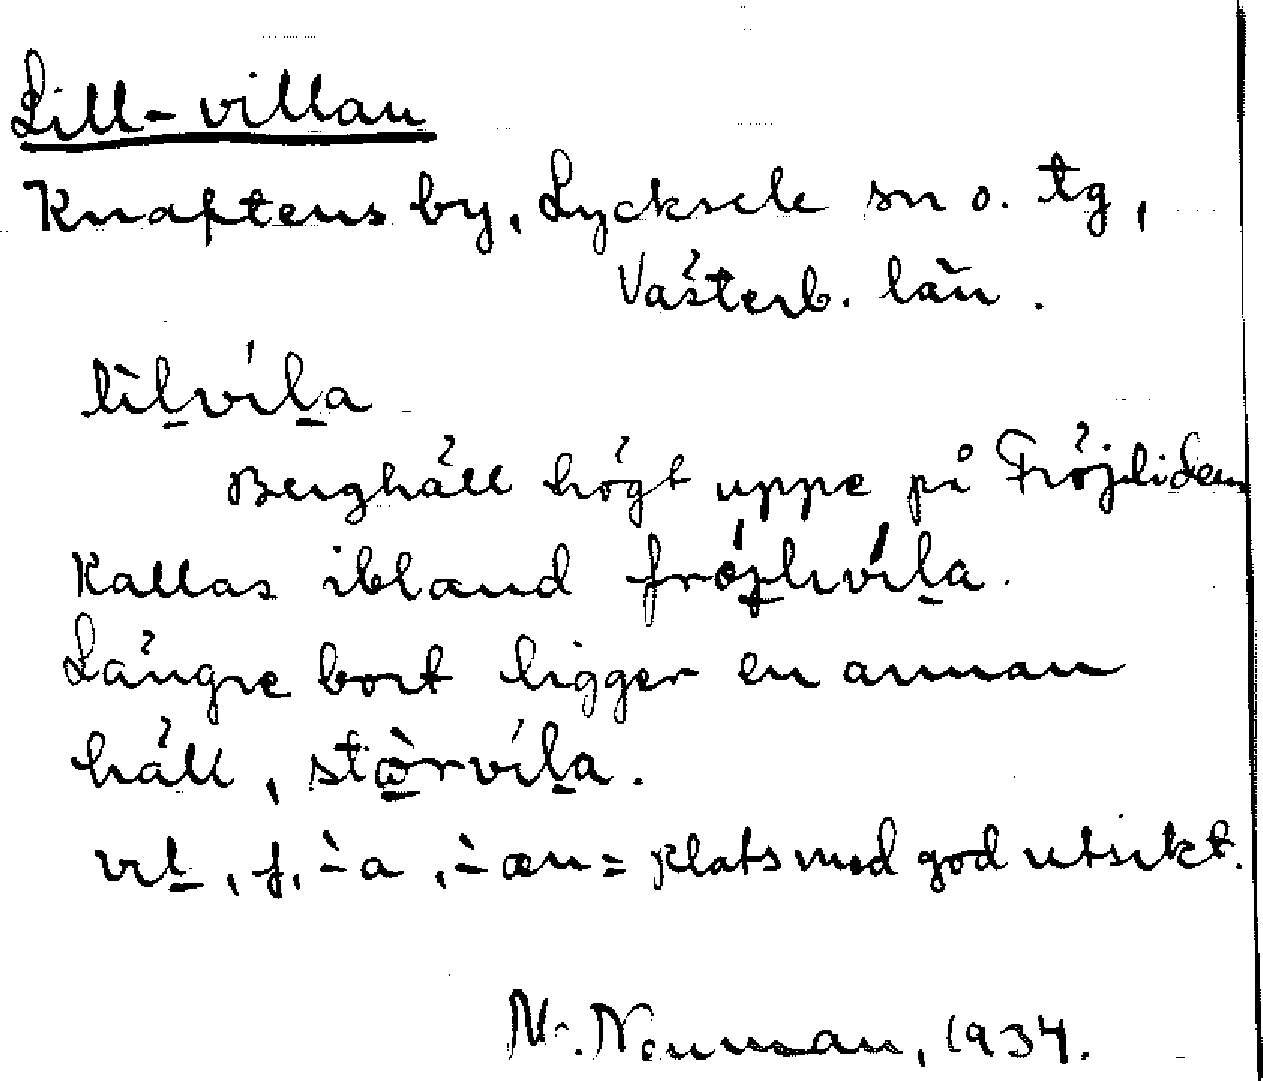 Lill-villan
Knaftens by, Lycksele sn o. tg,
Västerb. län.
lìlvíla
Berghäll högt uppe på Fröjliden
Kallas ibland frǿjlivíla.
Längre bort ligger en annan
häll, stòrvíla.
vil, f, -̀a, -̀æn = plats med god utsikt.
Neuman, 1934.